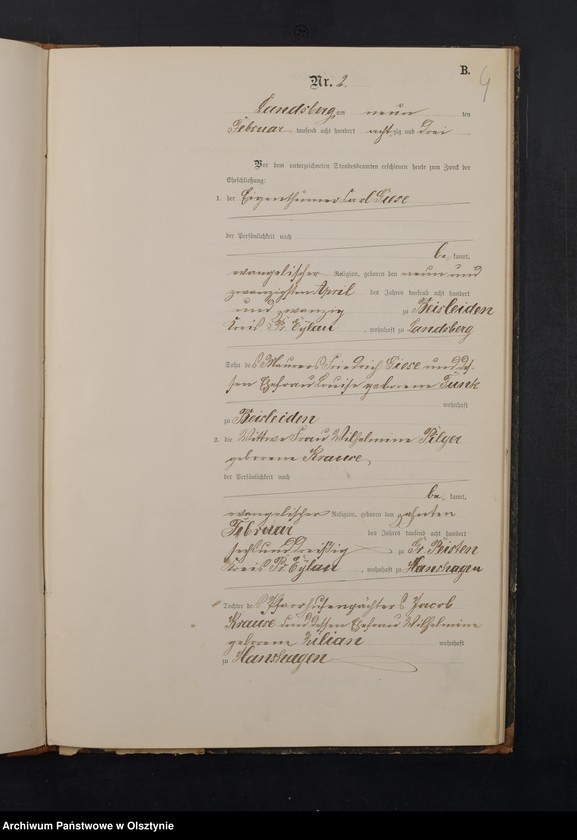 B.
Nr. 2.
Landsberg, am neun ten
Februar tausend acht hundert achtzig und drei
Vor dem unterzeichneten Standesbeamten erschienen heute zum Zweck der
Eheschließung:
1. der Eigenthümer Carl Giese
der Persönlichkeit nach
be kannt,
evangelischer Religion, geboren den neun und
zwanzigsten April des Jahres tausend acht hundert
und zwanzig zu Beisleiden
Kreis Pr. Eylau, wohnhaft zu Landsberg
Sohn des Maurers Friedrich Giese und des-
sen Ehefrau Louise geborene Funk
wohnhaft
zu Beisleiden
2. die Wittwe Frau Wilhelmine Pilger
geborene Krause,
der Persönlichkeit nach
be kannt,
evangelischer Religion, geboren den zehnten
Februar des Jahres tausend acht hundert
sechsunddreißig zu Gr. Peisten
Kreis Pr. Eylau, wohnhaft zu Hanshagen
Tochter des Pfarrhufenpächters Jacob
Krause und dessen Ehefrau Wilhelmine
geborene Zilian wohnhaft
zu Hanshagen
Archiwum Państwowe w Olsztynie